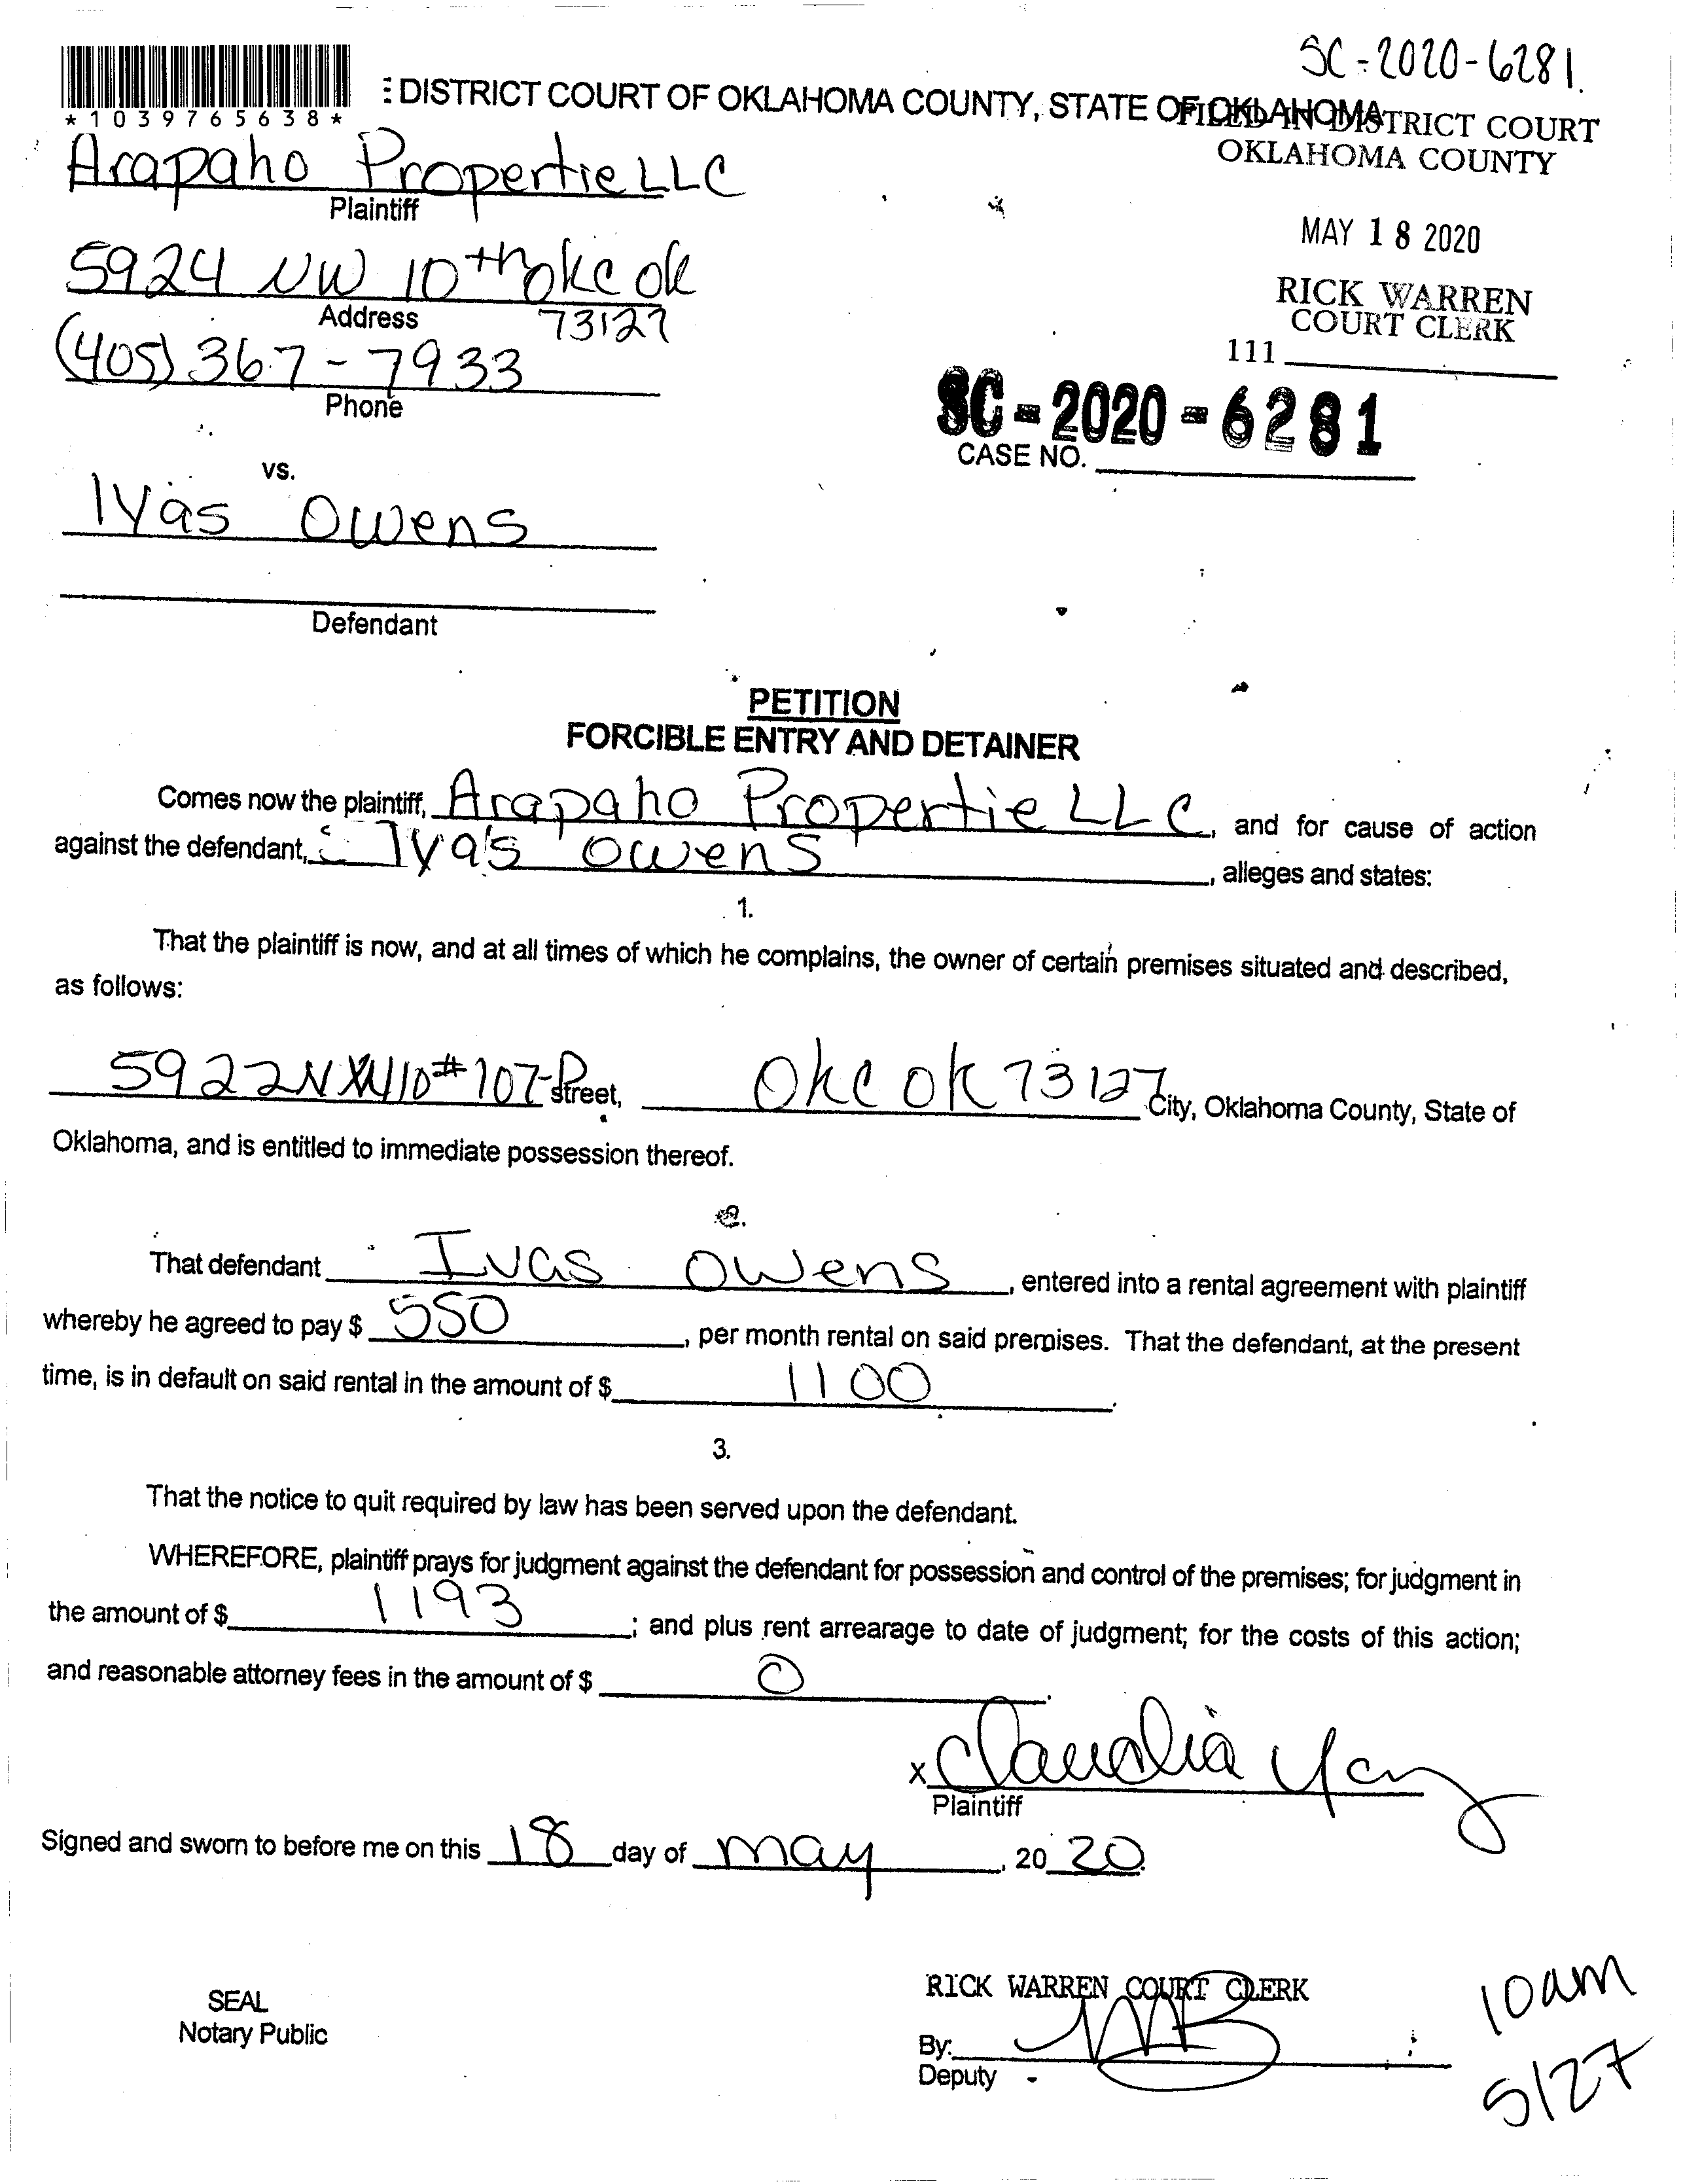 SC-2020-6281.
DISTRICT COURT OF OKLAHOMA COUNTY, STATE OF OKLAHOMA
*1039765638*
FILED IN DISTRICT COURT
OKLAHOMA COUNTY
Arapaho Propertie LLC
Plaintiff
MAY 18 2020
5924 NW 10th okc ok
Address
73127
RICK WARREN
COURT CLERK
(405) 367-7933
Phone
111
SC-2020-6281
CASE NO.
vs.
Iyas Owens
Defendant
PETITION
FORCIBLE ENTRY AND DETAINER
Comes now the plaintiff, Arapaho Propertie LLC, and for cause of action
against the defendant, Iyas Owens, alleges and states:
1.
That the plaintiff is now, and at all times of which he complains, the owner of certain premises situated and described,
as follows:
5922 NW 10 #107 Street, Okc Ok 73127 City, Oklahoma County, State of
Oklahoma, and is entitled to immediate possession thereof.
2.
That defendant Ivas Owens, entered into a rental agreement with plaintiff
whereby he agreed to pay $ 550, per month rental on said premises. That the defendant, at the present
time, is in default on said rental in the amount of $ 1100.
3.
That the notice to quit required by law has been served upon the defendant.
WHEREFORE, plaintiff prays for judgment against the defendant for possession and control of the premises; for judgment in
the amount of $ 1193; and plus rent arrearage to date of judgment; for the costs of this action;
and reasonable attorney fees in the amount of $ 0.
x Claudia
Plaintiff
Signed and sworn to before me on this 18 day of may, 20 20.
RICK WARREN COURT CLERK
SEAL
Notary Public
By:
Deputy
10am
5/27